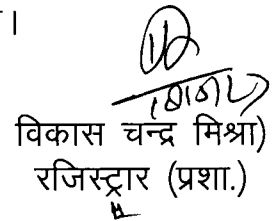 ।
विकास चन्द्र मिश्रा)
रजिस्ट्रार (प्रशा.)